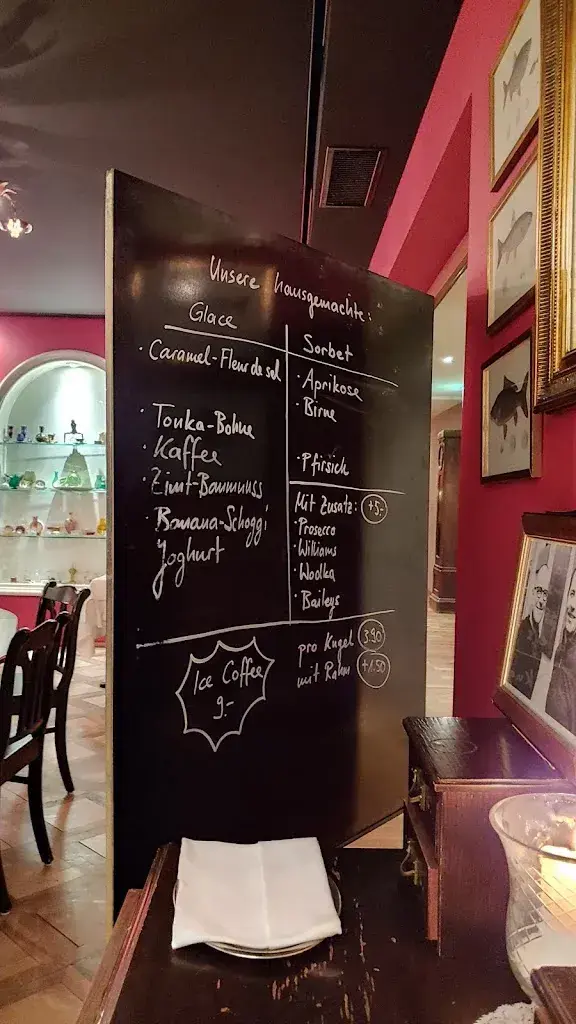 Unsere hausgemachte:
Glace
· Caramel-Fleur de sel
· Tonka-Bohne
· Kaffee
· Zimt-Baumnuss
· Banana-Schoggi
Joghurt
Sorbet
· Aprikose
· Birne
· Pfirsich
Mit Zusatz: +5.-
· Prosecco
· Williams
· Wodka
· Baileys
Ice Coffee
9.-
pro Kugel 3.90
mit Rahm +1.50